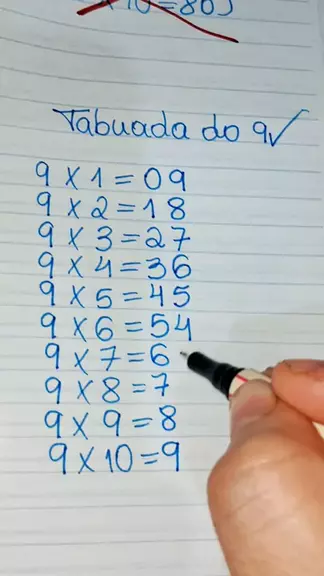 x 10 = 80
Tabuada do 9✓
9 x 1 = 09
9 x 2 = 18
9 x 3 = 27
9 x 4 = 36
9 x 5 = 45
9 x 6 = 54
9 x 7 = 6
9 x 8 = 7
9 x 9 = 8
9 x 10 = 9